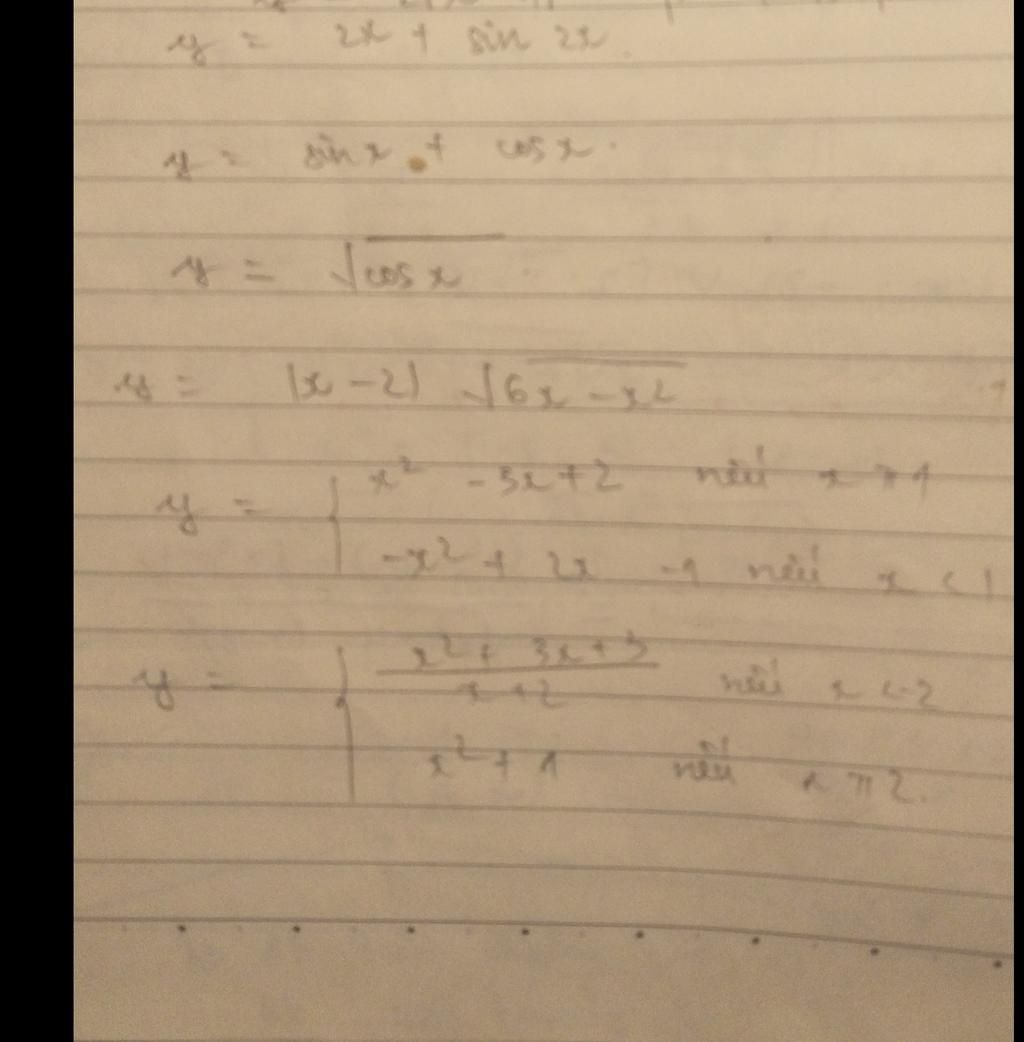 y = 2x + sin 2x.
y = sin x + cos x.
y = √cos x
y = |x - 2| √6x - x²
y = { x² - 3x + 2 nếu x ≥ 1
-x² + 2x - 1 nếu x < 1
y = { x² + 3x + 3 / x + 2 nếu x < -2
x² + 1 nếu x ≥ 2.